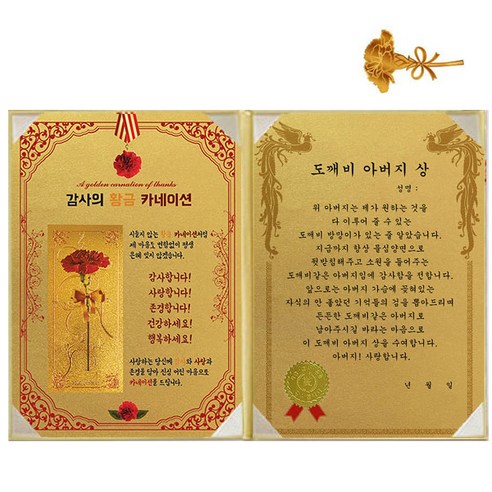 A golden carnation of thanks
감사의 황금 카네이션
시들지 않는 황금 카네이션처럼
제 마음도 변함없이 평생
은혜 잊지 않겠습니다.
감사합니다!
사랑합니다!
존경합니다!
건강하세요!
행복하세요!
사랑하는 당신께 감사와 사랑과
존경을 담아 진심 어린 마음으로
카네이션을 드립니다.
도깨비 아버지 상
성명 :
위 아버지는 제가 원하는 것을
다 이루어 줄 수 있는
도깨비 방망이가 있는 줄 알았습니다.
지금까지 항상 물심양면으로
뒷받침해주고 소원을 들어주는
도깨비같은 아버지임에 감사함을 전합니다.
앞으로는 아버지 가슴에 꽂혀있는
자식의 안 좋았던 기억들의 검을 뽑아드리며
든든한 도깨비같은 아버지로
남아주시길 바라는 마음으로
이 도깨비 아버지 상을 수여합니다.
아버지! 사랑합니다.
년 월 일